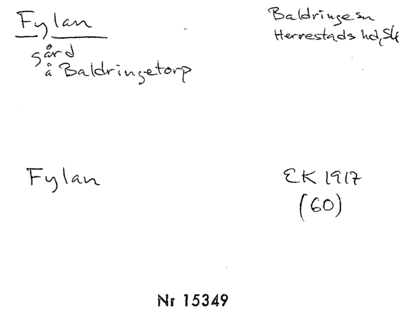 Fylan
gård
å Baldringetorp
Baldringe sn
Herrestads hd, Sk
Fylan
EK 1917
(60)
Nr 15349